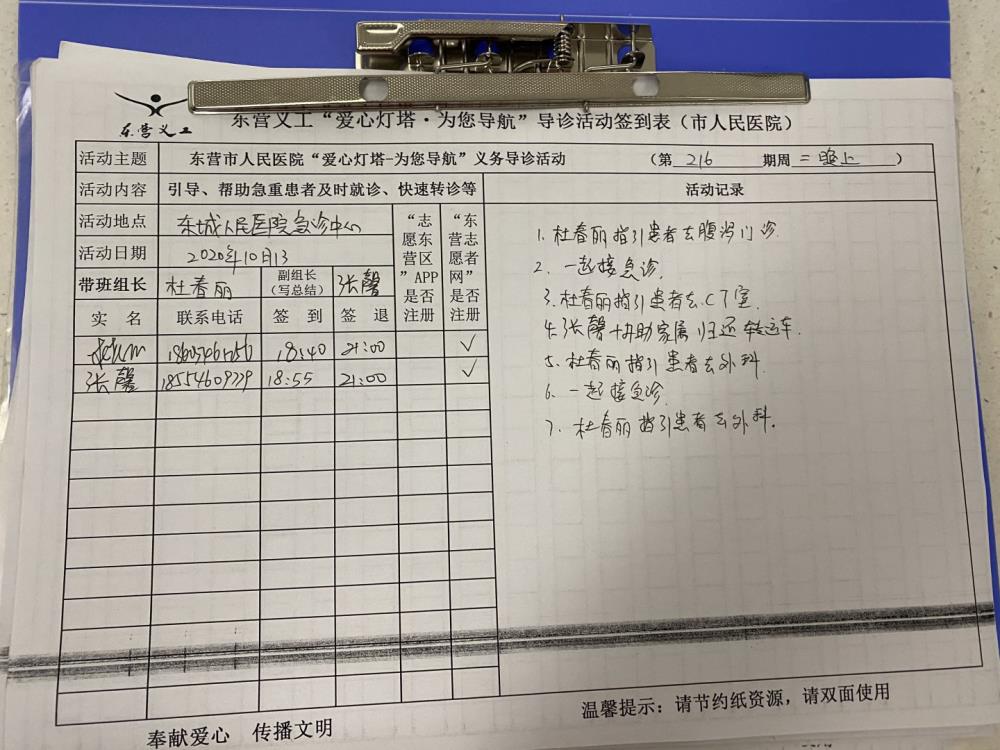 东营义工
东营义工“爱心灯塔·为您导航”导诊活动签到表（市人民医院）
活动主题 东营市人民医院“爱心灯塔-为您导航”义务导诊活动 （第 216 期周 二晚上 ）
活动内容 引导、帮助急重患者及时就诊、快速转诊等 活动记录
活动地点 东城人民医院急诊中心
活动日期 2020年10月13
带班组长 杜春丽 副组长（写总结） 张馨
“志愿东营区”APP是否注册
“东营志愿者网”是否注册
实 名 联系电话 签 到 签 退
18:40 21:00 ✓
张馨 18554609779 18:55 21:00 ✓
1. 杜春丽指引患者去腹泻门诊.
2、一起接急诊.
3. 杜春丽指引患者去CT室.
4. 张馨协助家属归还转运车.
5. 杜春丽指引患者去外科.
6. 一起接急诊.
7、杜春丽指引患者去外科.
奉献爱心 传播文明
温馨提示：请节约纸资源，请双面使用